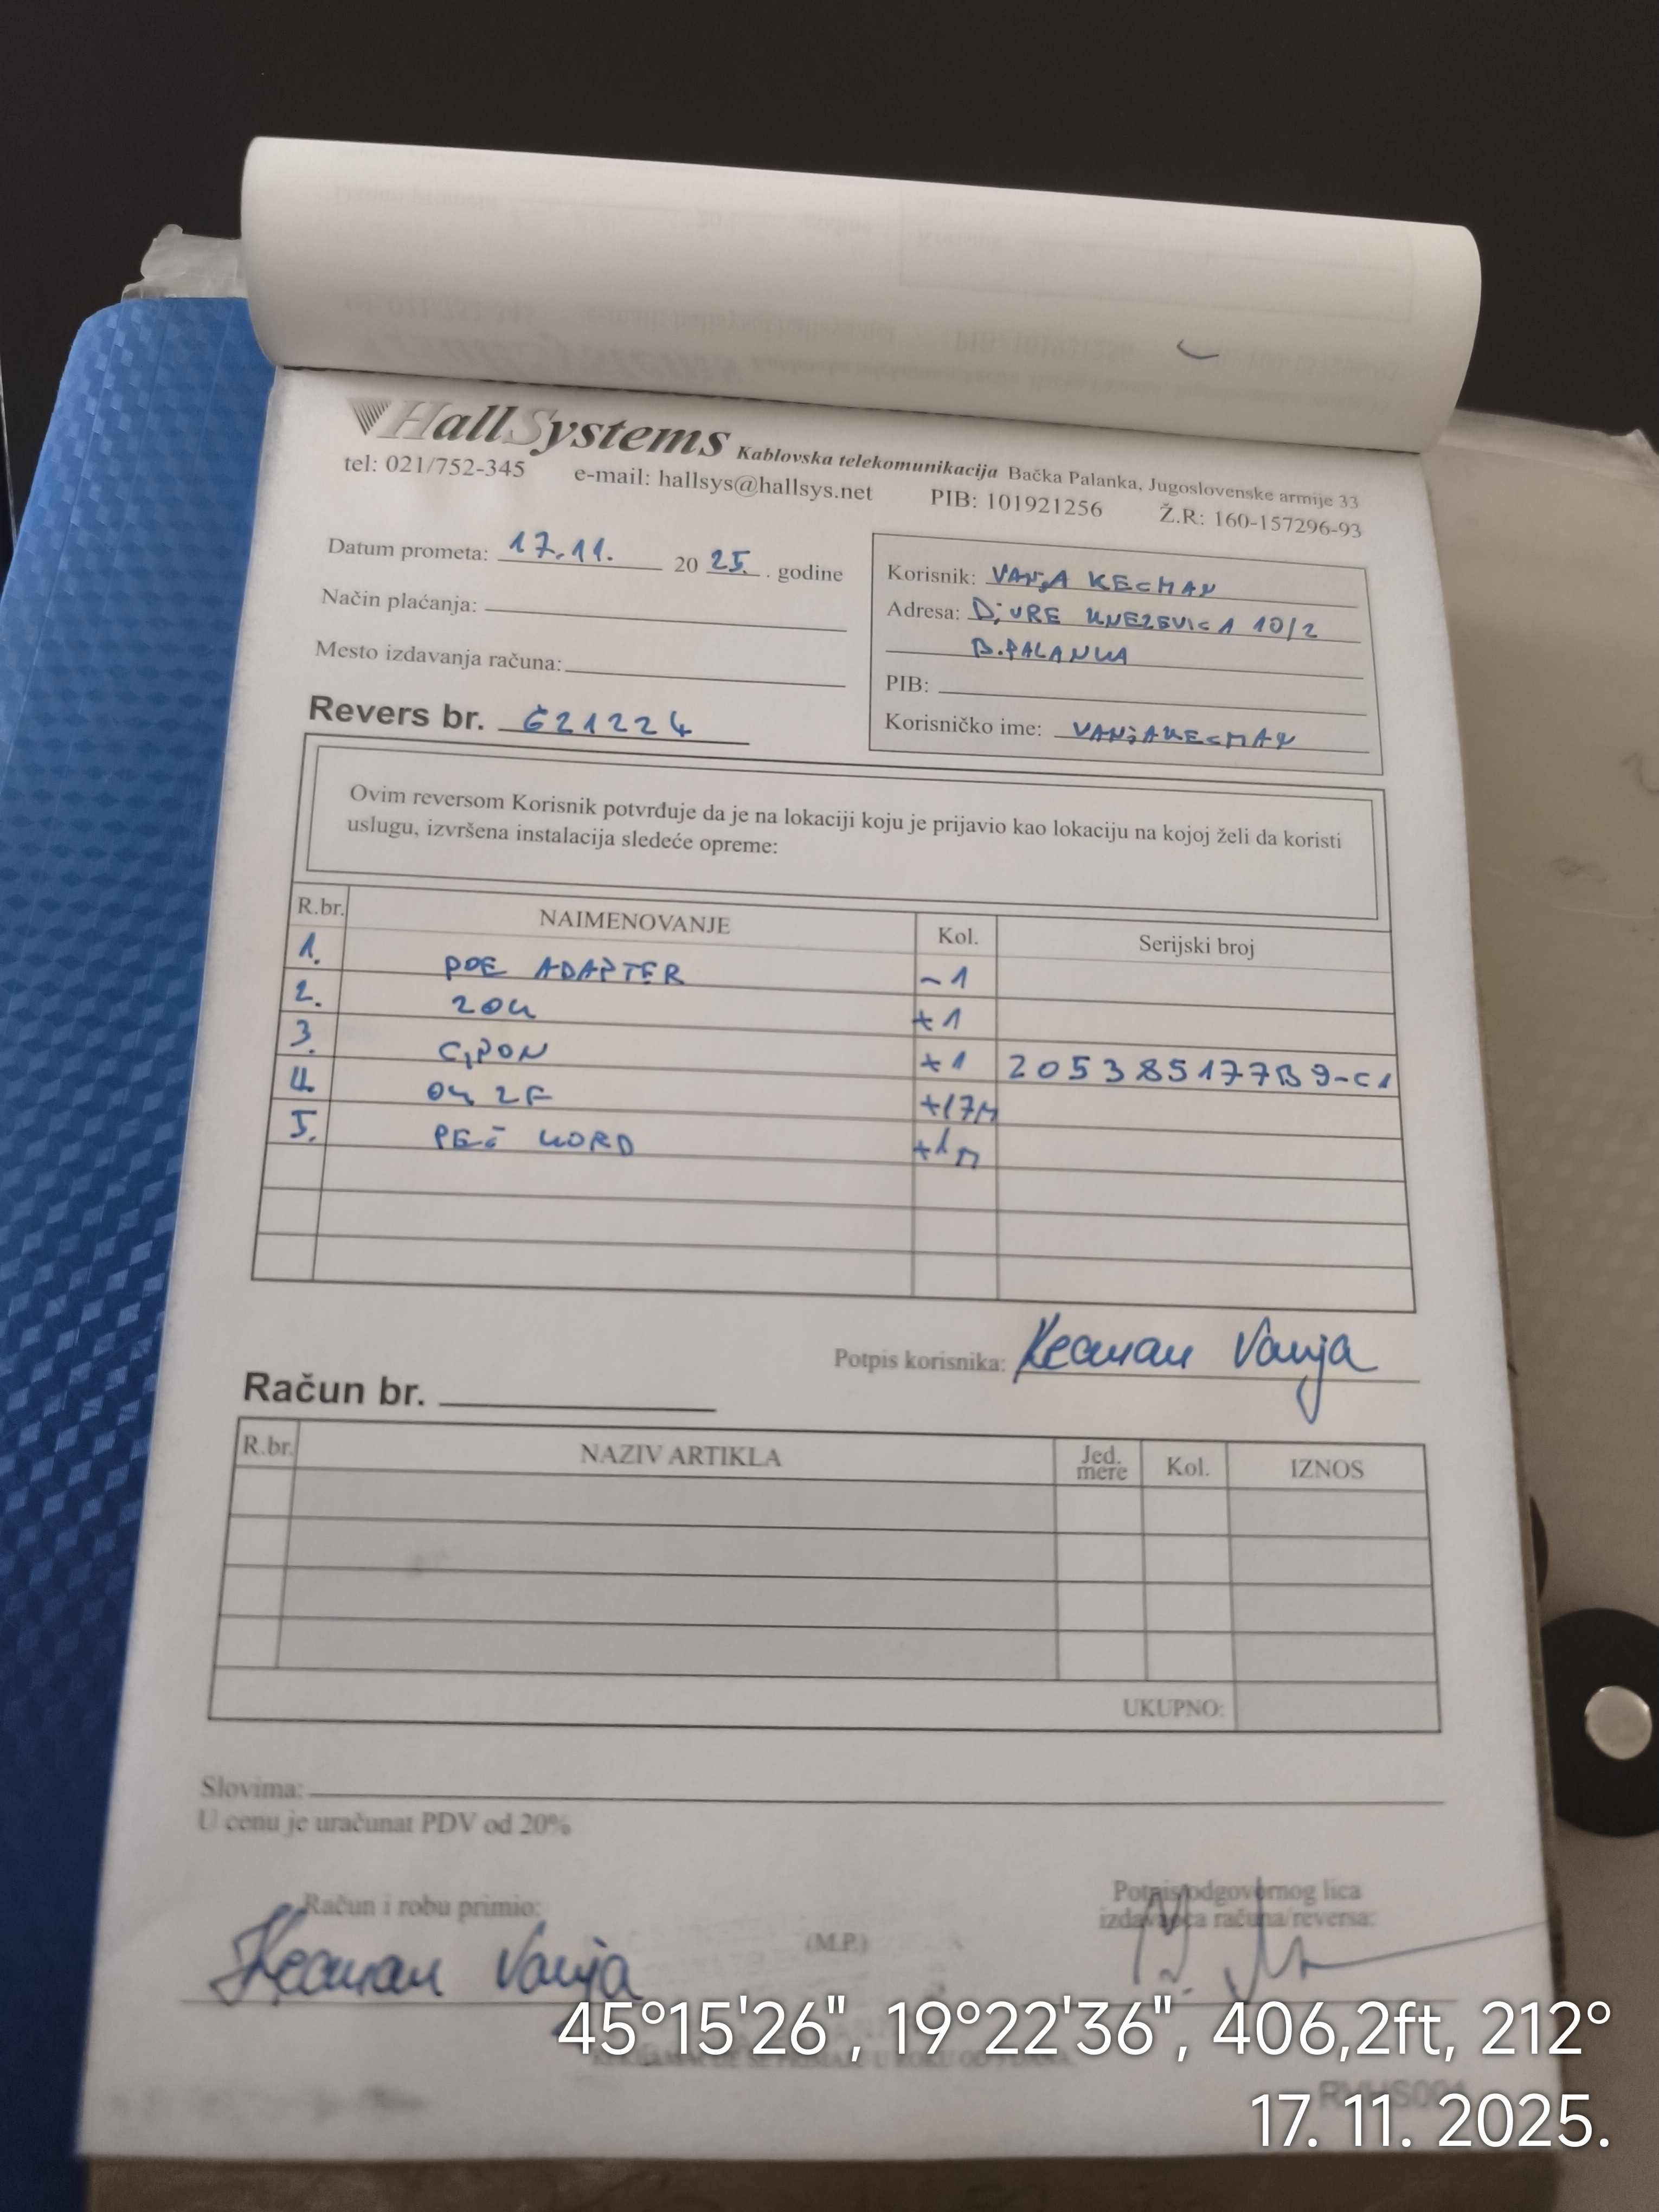 HallSystems Kablovska telekomunikacija Bačka Palanka, Jugoslovenske armije 33
tel: 021/752-345 e-mail: hallsys@hallsys.net PIB: 101921256 Ž.R: 160-157296-93
Datum prometa: 17.11. 20 25. . godine
Način plaćanja:
Mesto izdavanja računa:
Korisnik: VANJA KECMAN
Adresa: DJURE KNEZEVICA 10/2
B.PALANKA
PIB:
Korisničko ime: VANJAKECMAN
Revers br. G21224
Ovim reversom Korisnik potvrđuje da je na lokaciji koju je prijavio kao lokaciju na kojoj želi da koristi
uslugu, izvršena instalacija sledeće opreme:
R.br. NAIMENOVANJE Kol. Serijski broj
1. POE ADAPTER -1
2. ZOK +1
3. GPON +1 205385177B9-C1
4. OK 2F +17M
5. PEČ KORD +1M
Potpis korisnika: Kecman Vanja
Račun br.
R.br. NAZIV ARTIKLA Jed. mere Kol. IZNOS
UKUPNO:
Slovima:
U cenu je uračunat PDV od 20%
Račun i robu primio:
Kecman Vanja
(M.P.)
Potpis odgovornog lica
izdavaoca računa/reversa:
45°15'26", 19°22'36", 406,2ft, 212°
17. 11. 2025.